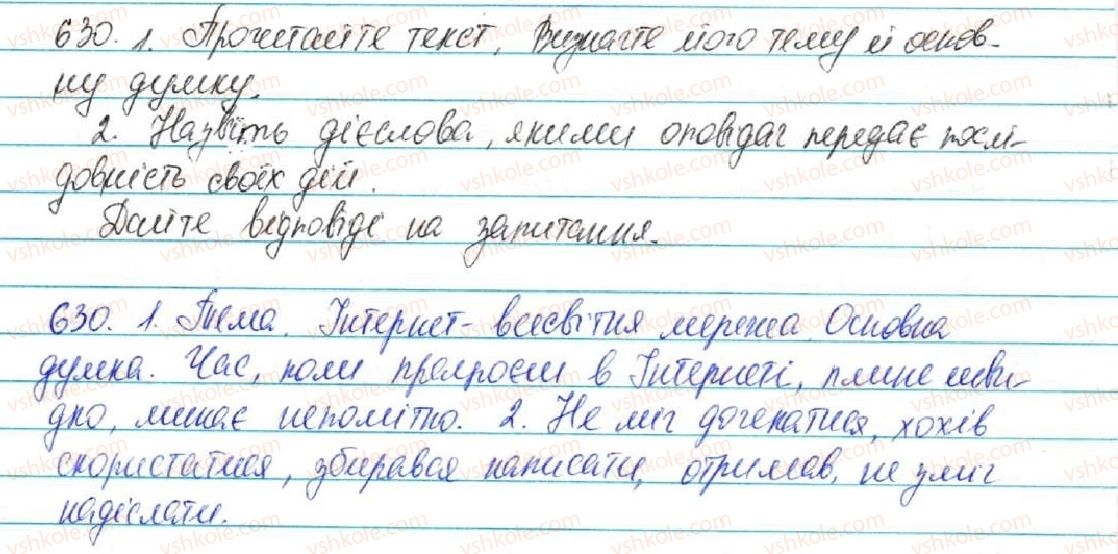 630. 1. Прочитайте текст. Визначте його тему й основ-
ну думку.
2. Назвіть дієслова, якими оповідач передає послі-
довність своїх дій.
Дайте відповіді на запитання.
630. 1. Тема. Інтернет - всесвітня мережа. Основна
думка. Час, коли працюєш в Інтернеті, плине шви-
дко, минає непомітно. 2. Не міг дочекатися, хотів
скористатися, збирався написати, отримав, не зміг
надіслати.